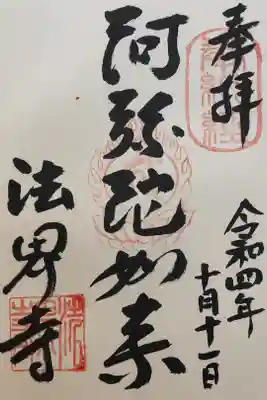 奉拝
令和四年
十月十一日
阿弥陀如来
法界寺